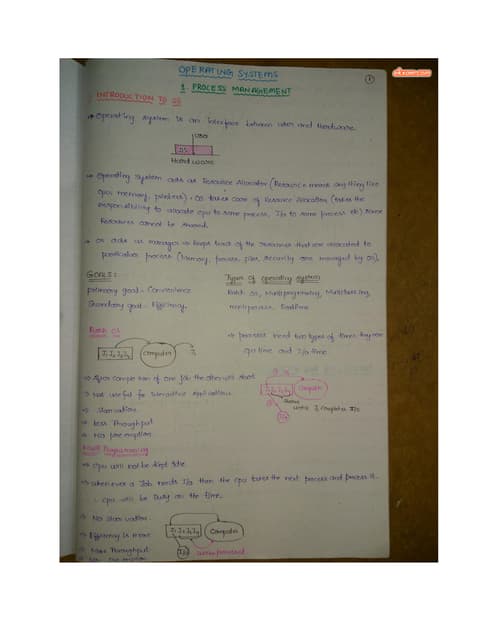 OPERATING SYSTEMS
1
1. PROCESS MANAGEMENT
INTRODUCTION TO OS
→ Operating system is an interface between user and Hardware.
user
OS
Hardware
→ Operating system acts as Resource Allocator (Resource means any thing like
cpu, memory, printers). OS takes care of Resource Allocation (takes the
responsibility to allocate cpu to some process, I/o to some process etc) some
Resources cannot be shared.
→ OS acts as manager → keeps track of the resources that are allocated to
particular process (Memory, process, files, security are managed by OS).
GOALS:
Types of operating system
primary goal - Convenience
Batch OS, Multiprogramming, Multitasking,
Secondary goal - Efficiency.
multiprocessor, Realtime
Batch OS
→ process need two types of times they are
cpu time and I/o time
J1 J2 J3 J4
Computer
→ After completion of one job the other will start
→ Not useful for Interactive Applications
→ Starvation
→ Less Throughput
→ No pre emption
J1 J2 J3 J4
Computer
until J1 completes I/o
I/o
Multi Programming
→ cpu will not be kept Idle
→ whenever a Job needs I/o then the cpu takes the next process and process it.
∴ cpu will be busy all the time.
→ No starvation.
→ Efficiency is more
→ More Throughput
→ No pre emption
J1 J2 J3 J4
Computer
I/o